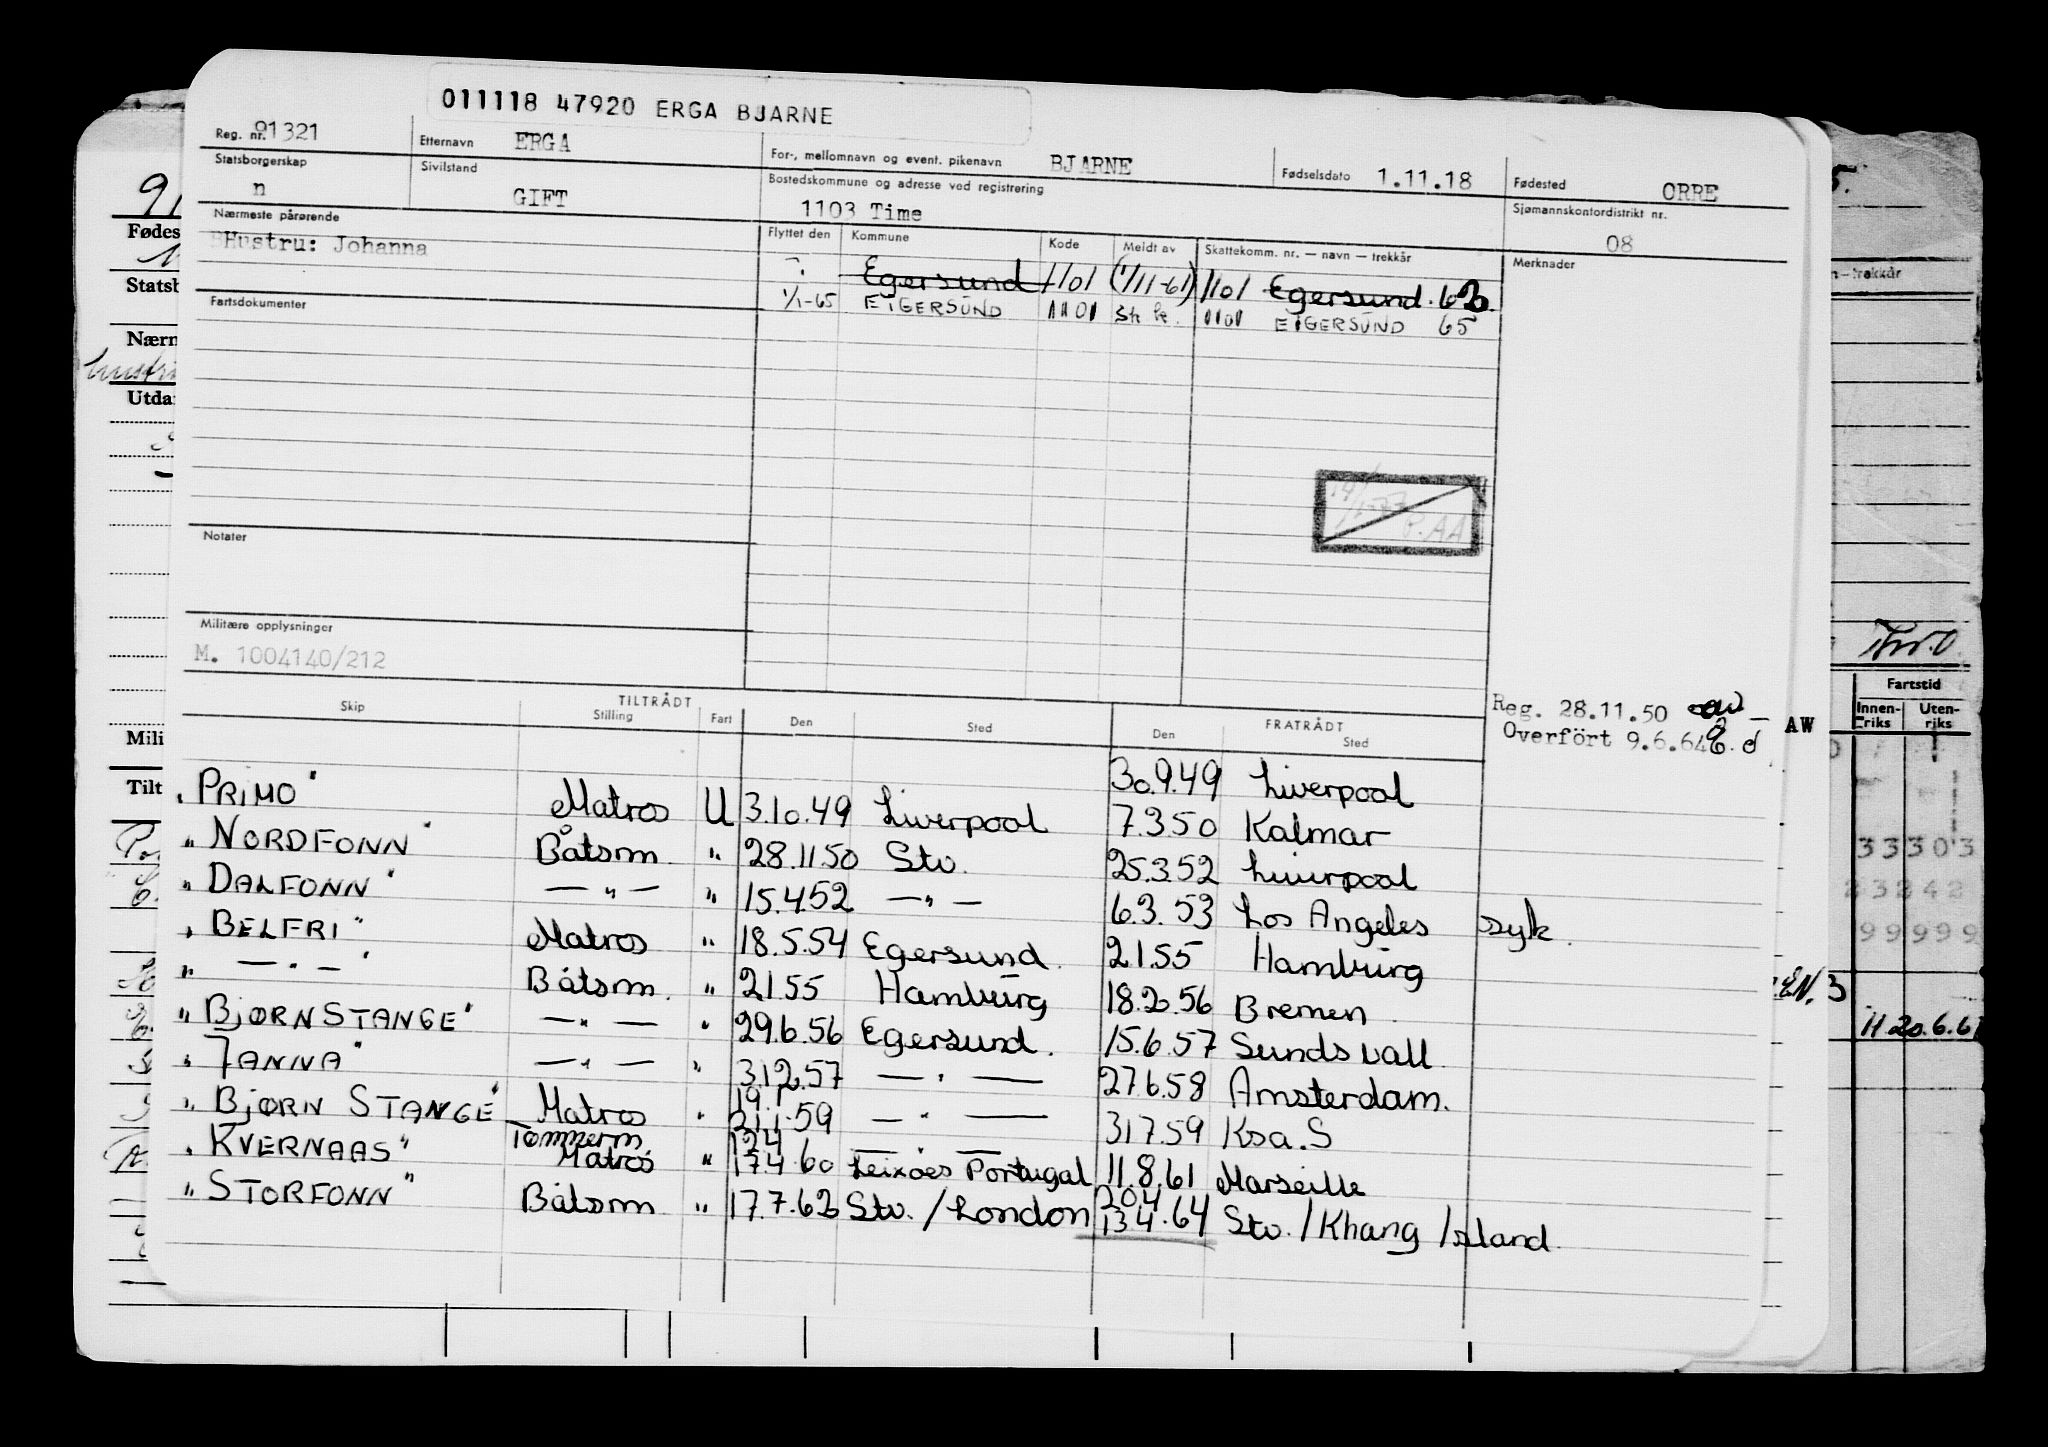 011118 47920 ERGA BJARNE
Reg. nr. 91321 Etternavn ERGA For-, mellomnavn og event. pikenavn BJARNE Fødselsdato 1.11.18 Fødested ORRE
Statsborgerskap n Sivilstand GIFT Bostedskommune og adresse ved registrering 1103 Time Sjømannskontordistrikt nr. 08
Nærmeste pårørende Flyttet den Kommune Kode Meldt av Skattekomm. nr. — navn — trekkår Merknader
Hustru: Johanna Egersund 1101 (1/11-61) 1101 Egersund
Fartsdokumenter 1/1-65 EIGERSUND 1101 1101 EIGERSUND 65
Notater
Militære opplysninger
M. 1004140/212
Reg. 28.11.50
Overfört 9.6.64 AW
TILTRÅDT FRATRÅDT
Skip Stilling Fart Den Sted Den Sted
30.9.49 Liverpool
"PRIMO" Matros U 3.10.49 Liverpool 7.3.50 Kalmar
"NORDFONN" Båtsm. " 28.11.50 Stv. 25.3.52 Liverpool
"DALFONN" — " — " 15.4.52 — " — 6.3.53 Los Angeles syk.
"BELFRI" Matros " 18.5.54 Egersund. 2.1.55 Hamburg
" — " — " Båtsm. " 2.1.55 Hamburg 18.2.56 Bremen.
"BJØRN STANGE" — " — " 29.6.56 Egersund. 15.6.57 Sundsvall
"JANNA" — " — " 3.12.57 — " — 27.6.58 Amsterdam.
"BJØRN STANGE" Matros " 19.1 21.1.59 — " — 31.7.59 Ksa. S
"KVERNAAS" Tømmerm. Matros " 12.4 17.4.60 — " — Leixoes Portugal 11.8.61 Marseille
"STORFONN" Båtsm. " 17.7.62 Stv. / London 20.4 13.4.64 Stv. / Khang Island
Fødes
Statsb
Nærm
Utda
Mili
Tilt
-trekkår
Fartstid
Innen-riks Uten-riks
33303
99999
H 20.6.6